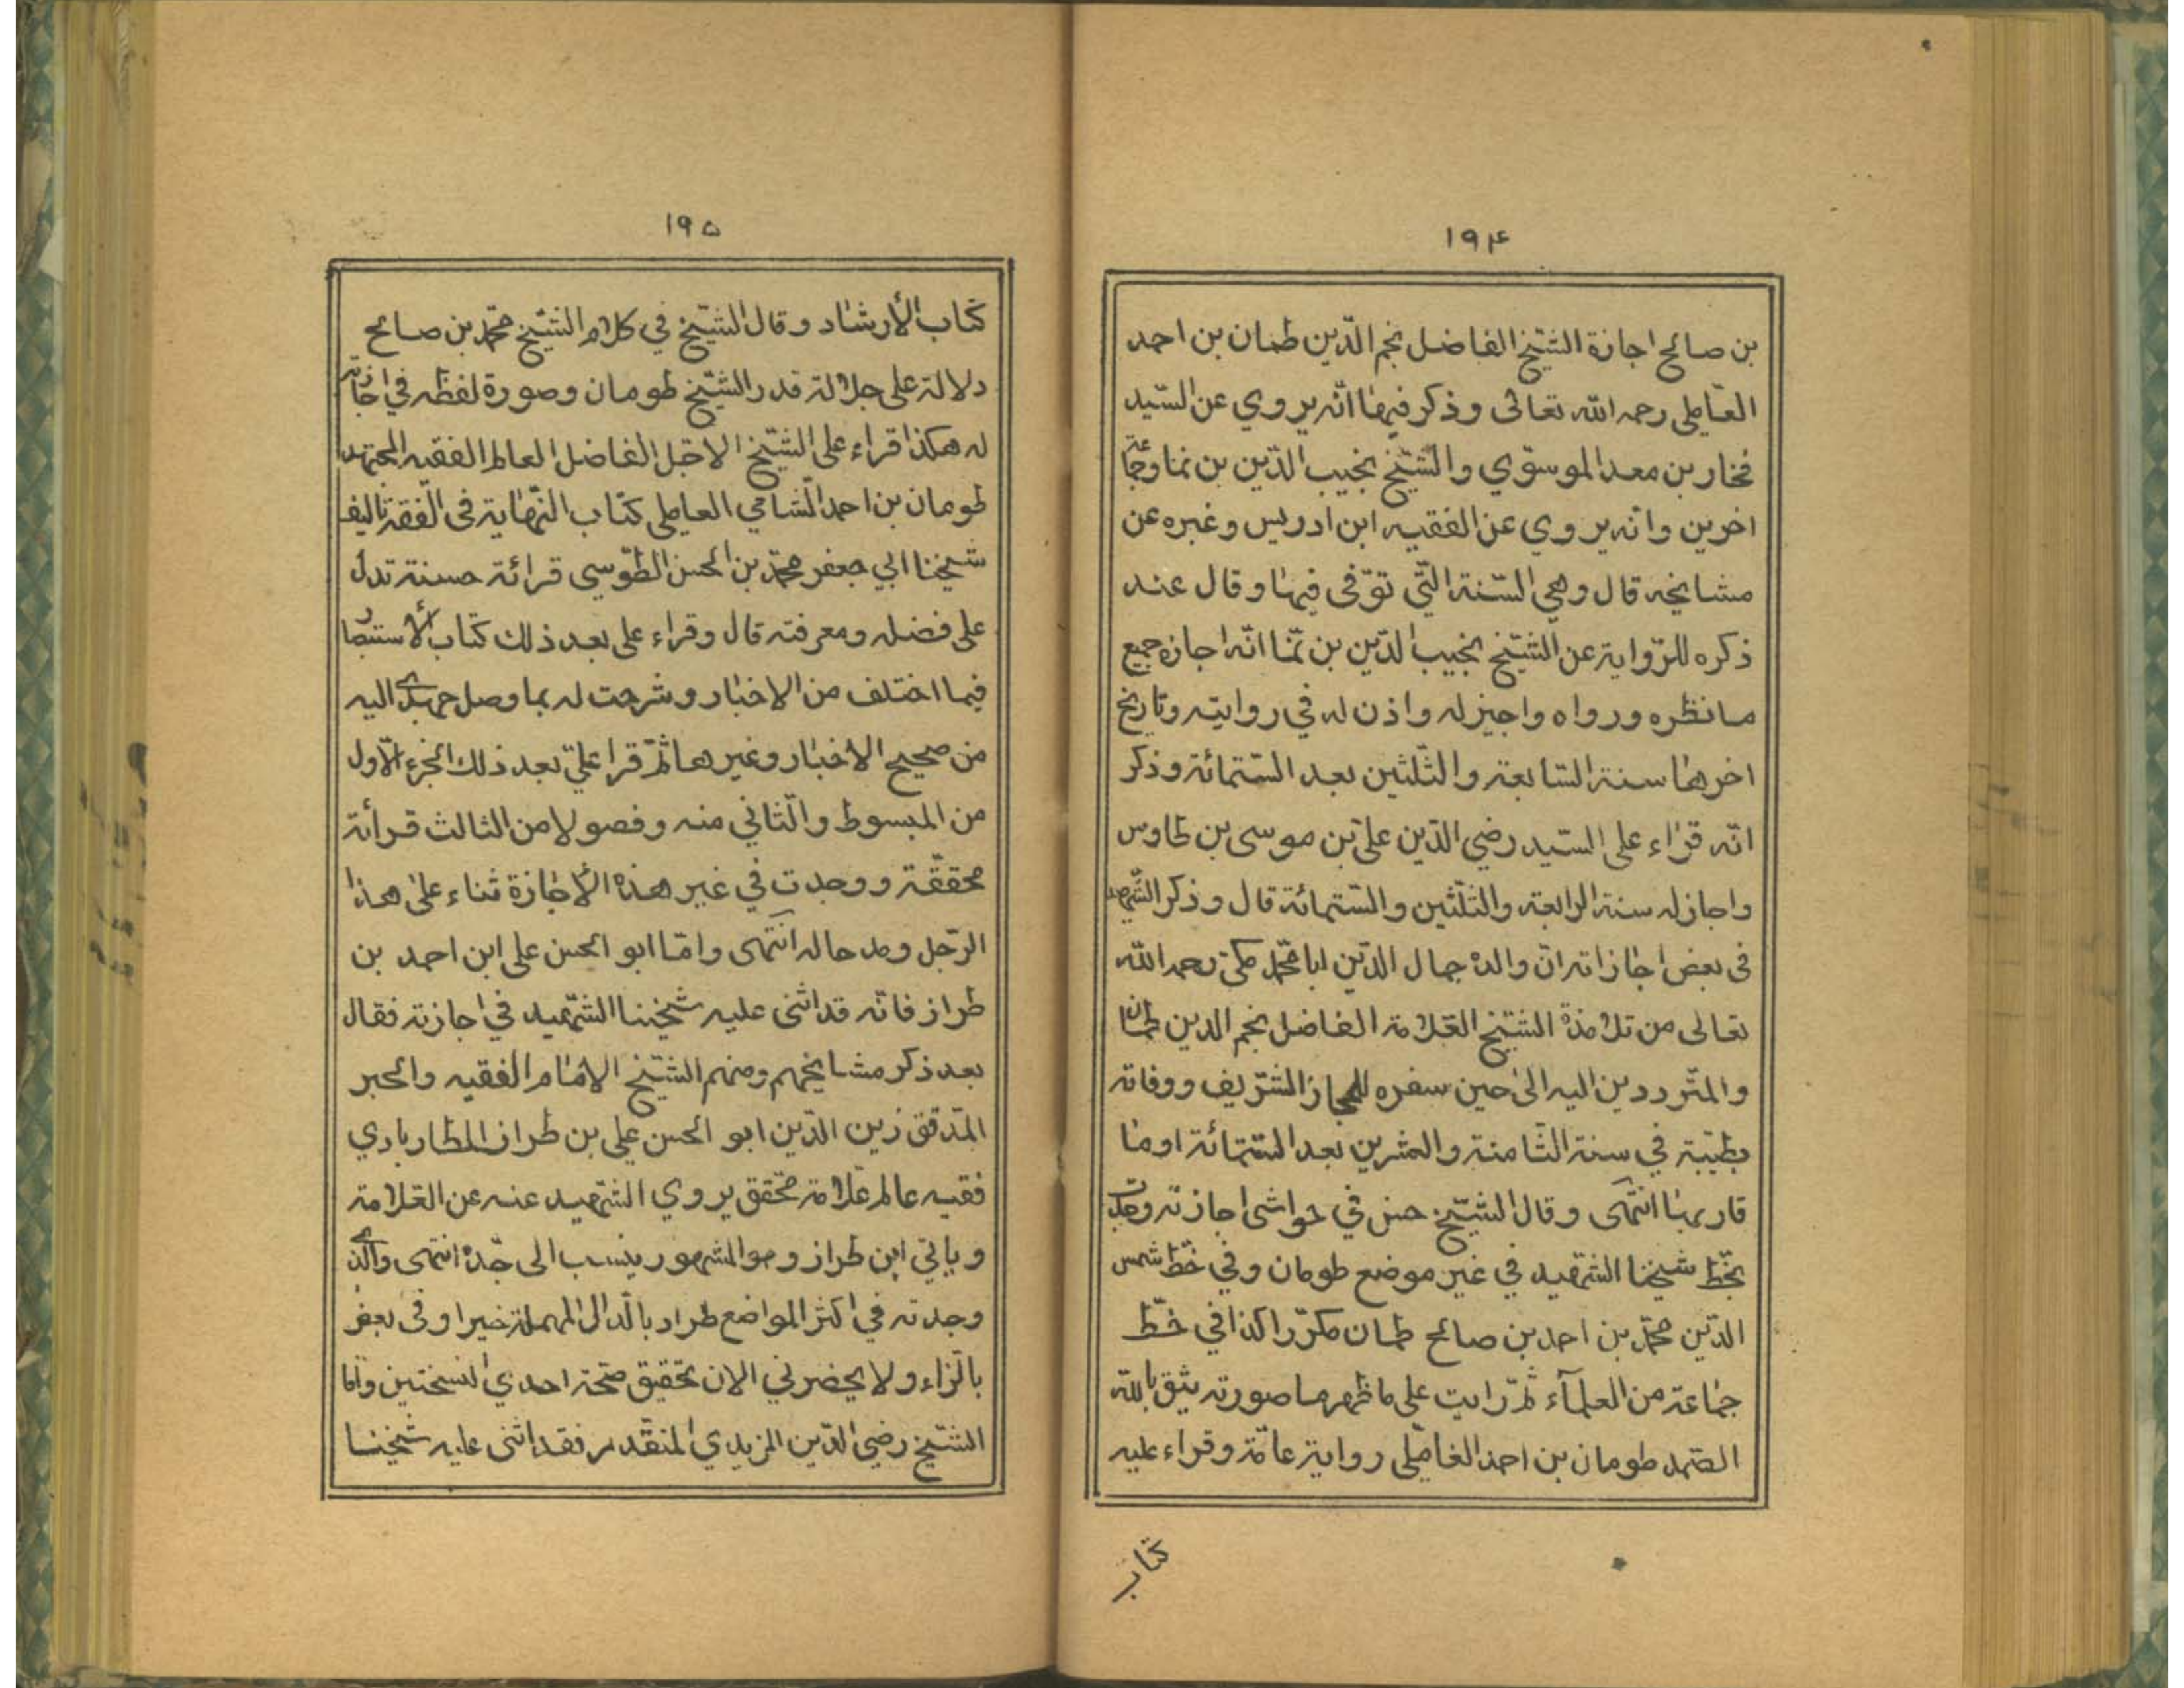 ١٩۴
بن صالح اجازة الشيخ الفاضل نجم الدّين طمان بن احمد
العاملی رحمه الله تعالى وذكر فيها انّه يروي عن السّيد
فخار بن معد الموسوي والشّيخ نجيب الدّين بن نما وجماعة
اخرين وانه يروي عن الفقيه ابن ادريس وغيره عن
مشايخه قال وهي السّنة الّتي توّفى فيها وقال عند
ذكره للرّواية عن الشّيخ نجيب الدّين بن نمّا انّه اجازه جميع
ما نظره ورواه واجيز له واذن له في روايته وتاريخ
اخرها سنة السّابعة والثّلثين بعد السّتمائة وذكر
انّه قراء على السّيد رضي الدّين عليّ بن موسى بن طاوس
واجاز له سنة الرابعة والثّلثين والسّتمائة قال وذكر الشّهيد
فى بعض اجازاته انّ والده جمال الدّين ابا محمّد مكّى رحمه الله
تعالى من تلامذة الشّيخ العّلامة الفاضل نجم الدين طمان
والمتّرددين اليه الى حين سفره للحجاز الشّريف ووفاته
بطيّبة في سنة الثّامنة والعشرين بعد السّتمائة او ما
قاربها انتهى وقال الشّيخ حسن في حواشى اجازته وجدت
بخّط شيخنا الشّهيد في غير موضع طومان وفي خّط شمس
الدّين محمّد بن احمد بن صالح طمان مكرّرا كذا في خّط
جماعة من العلمآء ثمّ رايت على ما ظهر ما صورته يثق بالله
الصّمد طومان بن احمد العاملّى رواية عامّة وقراء عليه
كتاب
١٩۵
كتاب الأرشاد وقال الشّيخ في كلام الشّيخ محّمد بن صالح
دلالة على جلالة قدر الشّيخ طومان وصورة لفظه في اجازته
له هكذا قراء على الشّيخ الاجّل الفاضل العالم الفقيه المجتهد
طومان بن احمد الشّامي العاملی كتاب النّهاية فى الفقه تاليف
شيخنا ابي جعفر محمّد بن الحسن الطّوسي قرائة حسنة تدل
على فضله ومعرفته قال وقراء على بعد ذلك كتاب الأستبصار
فيما اختلف من الاخبار وشرحت له بما وصل جهدى اليه
من صحيح الاخبار وغيرها ثّم قرا عليّ بعد ذلك الجزء الّاول
من المبسوط والّثاني منه وفصولا من الثالث قرأئة
محققّة ووجدت في غير هذه الأجازة ثناء على هذا
الرّجل ومد حاله انتهى وامّا ابو الحسن علی ابن احمد بن
طراز فانّه قد اثنى عليه شيخنا الشّهيد في اجازته فقال
بعد ذكر مشايخهم ومنهم الشّيخ الامام الفقيه والحبر
المّدقق زين الدّين ابو الحسن علي بن طراز المطاربادي
فقيه عالم عّلامة محّقق يروي الشّهيد عنه عن العّلامة
وياتي ابن طراز وهو المشهور ينسب الى جّده انتهى والّذى
وجدته في اكثر المواضع طراد بالّدال المهملة خيرا وفى بعض
بالّزاء ولا يحضرني الان تحقيق صّحة احدي النسختين وامّا
الشّيخ رضي الدّين المزيدي المتقّدم فقد اثنى عليه شيخنا